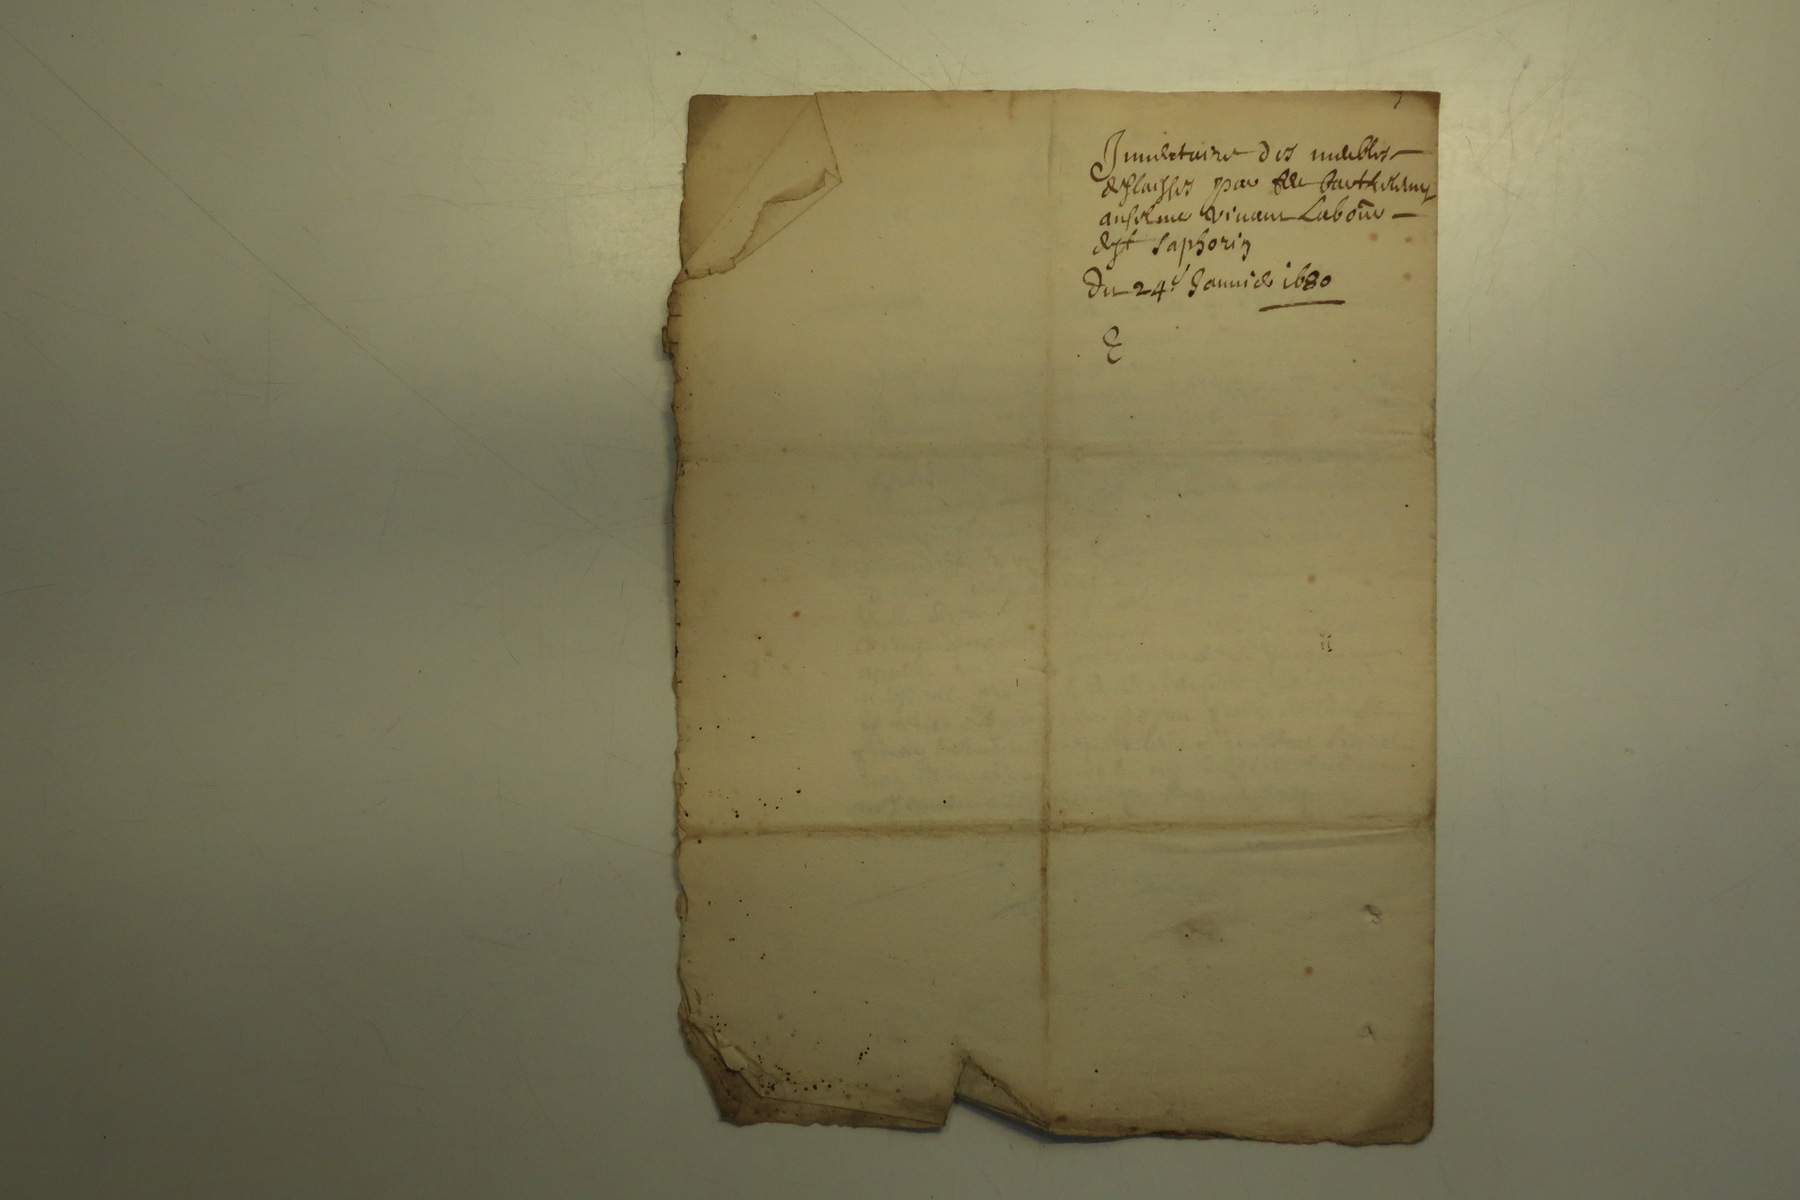 Inventaire des meubles
delaisses par feu Barthelemy
anselme vivant Labour
de st saphorin
Du 24e Janvier 1680
E